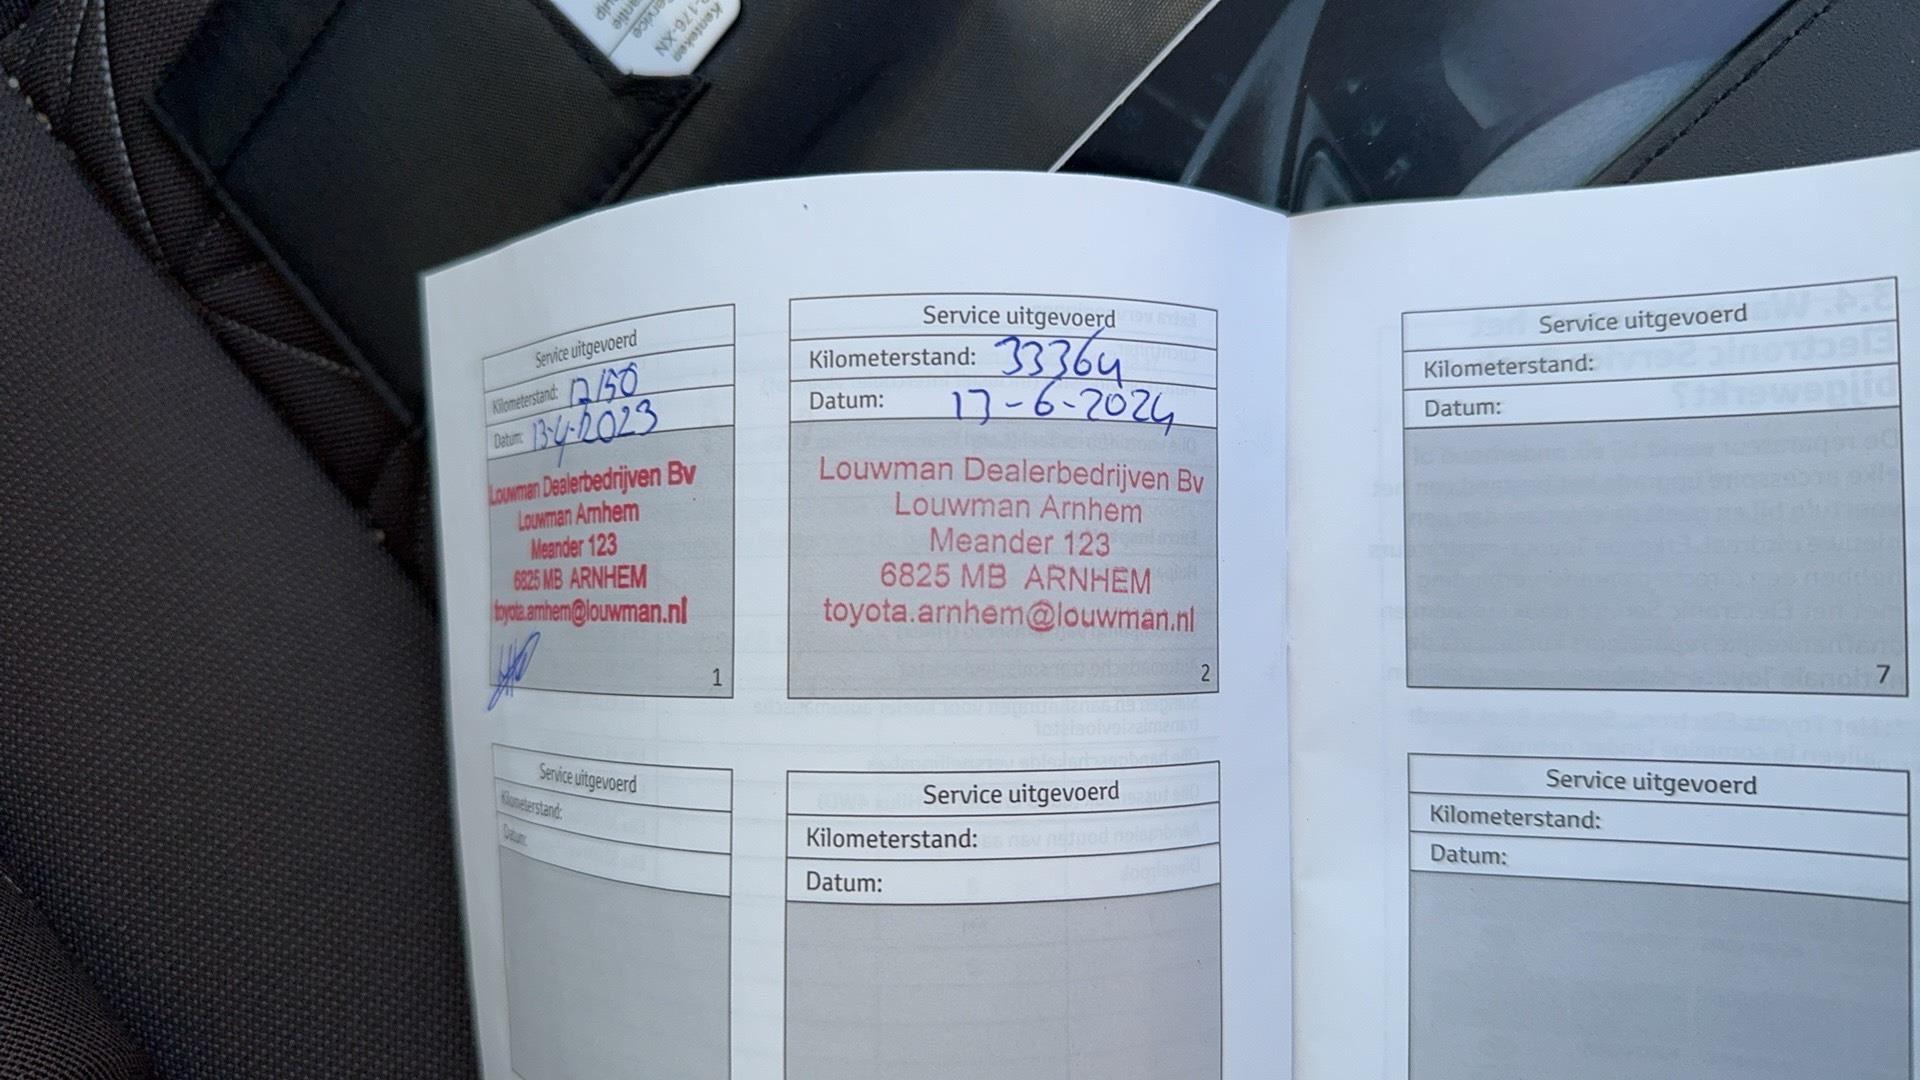 Kenteken
-176-XN
Service uitgevoerd
Kilometerstand: 17150
Datum: 13-4-2023
Louwman Dealerbedrijven Bv
Louwman Arnhem
Meander 123
6825 MB ARNHEM
toyota.arnhem@louwman.nl
1
Service uitgevoerd
Kilometerstand: 33364
Datum: 17-6-2024
Louwman Dealerbedrijven Bv
Louwman Arnhem
Meander 123
6825 MB ARNHEM
toyota.arnhem@louwman.nl
2
Service uitgevoerd
Kilometerstand:
Datum:
7
Service uitgevoerd
Kilometerstand:
Datum:
Service uitgevoerd
Kilometerstand:
Datum:
Service uitgevoerd
Kilometerstand:
Datum: